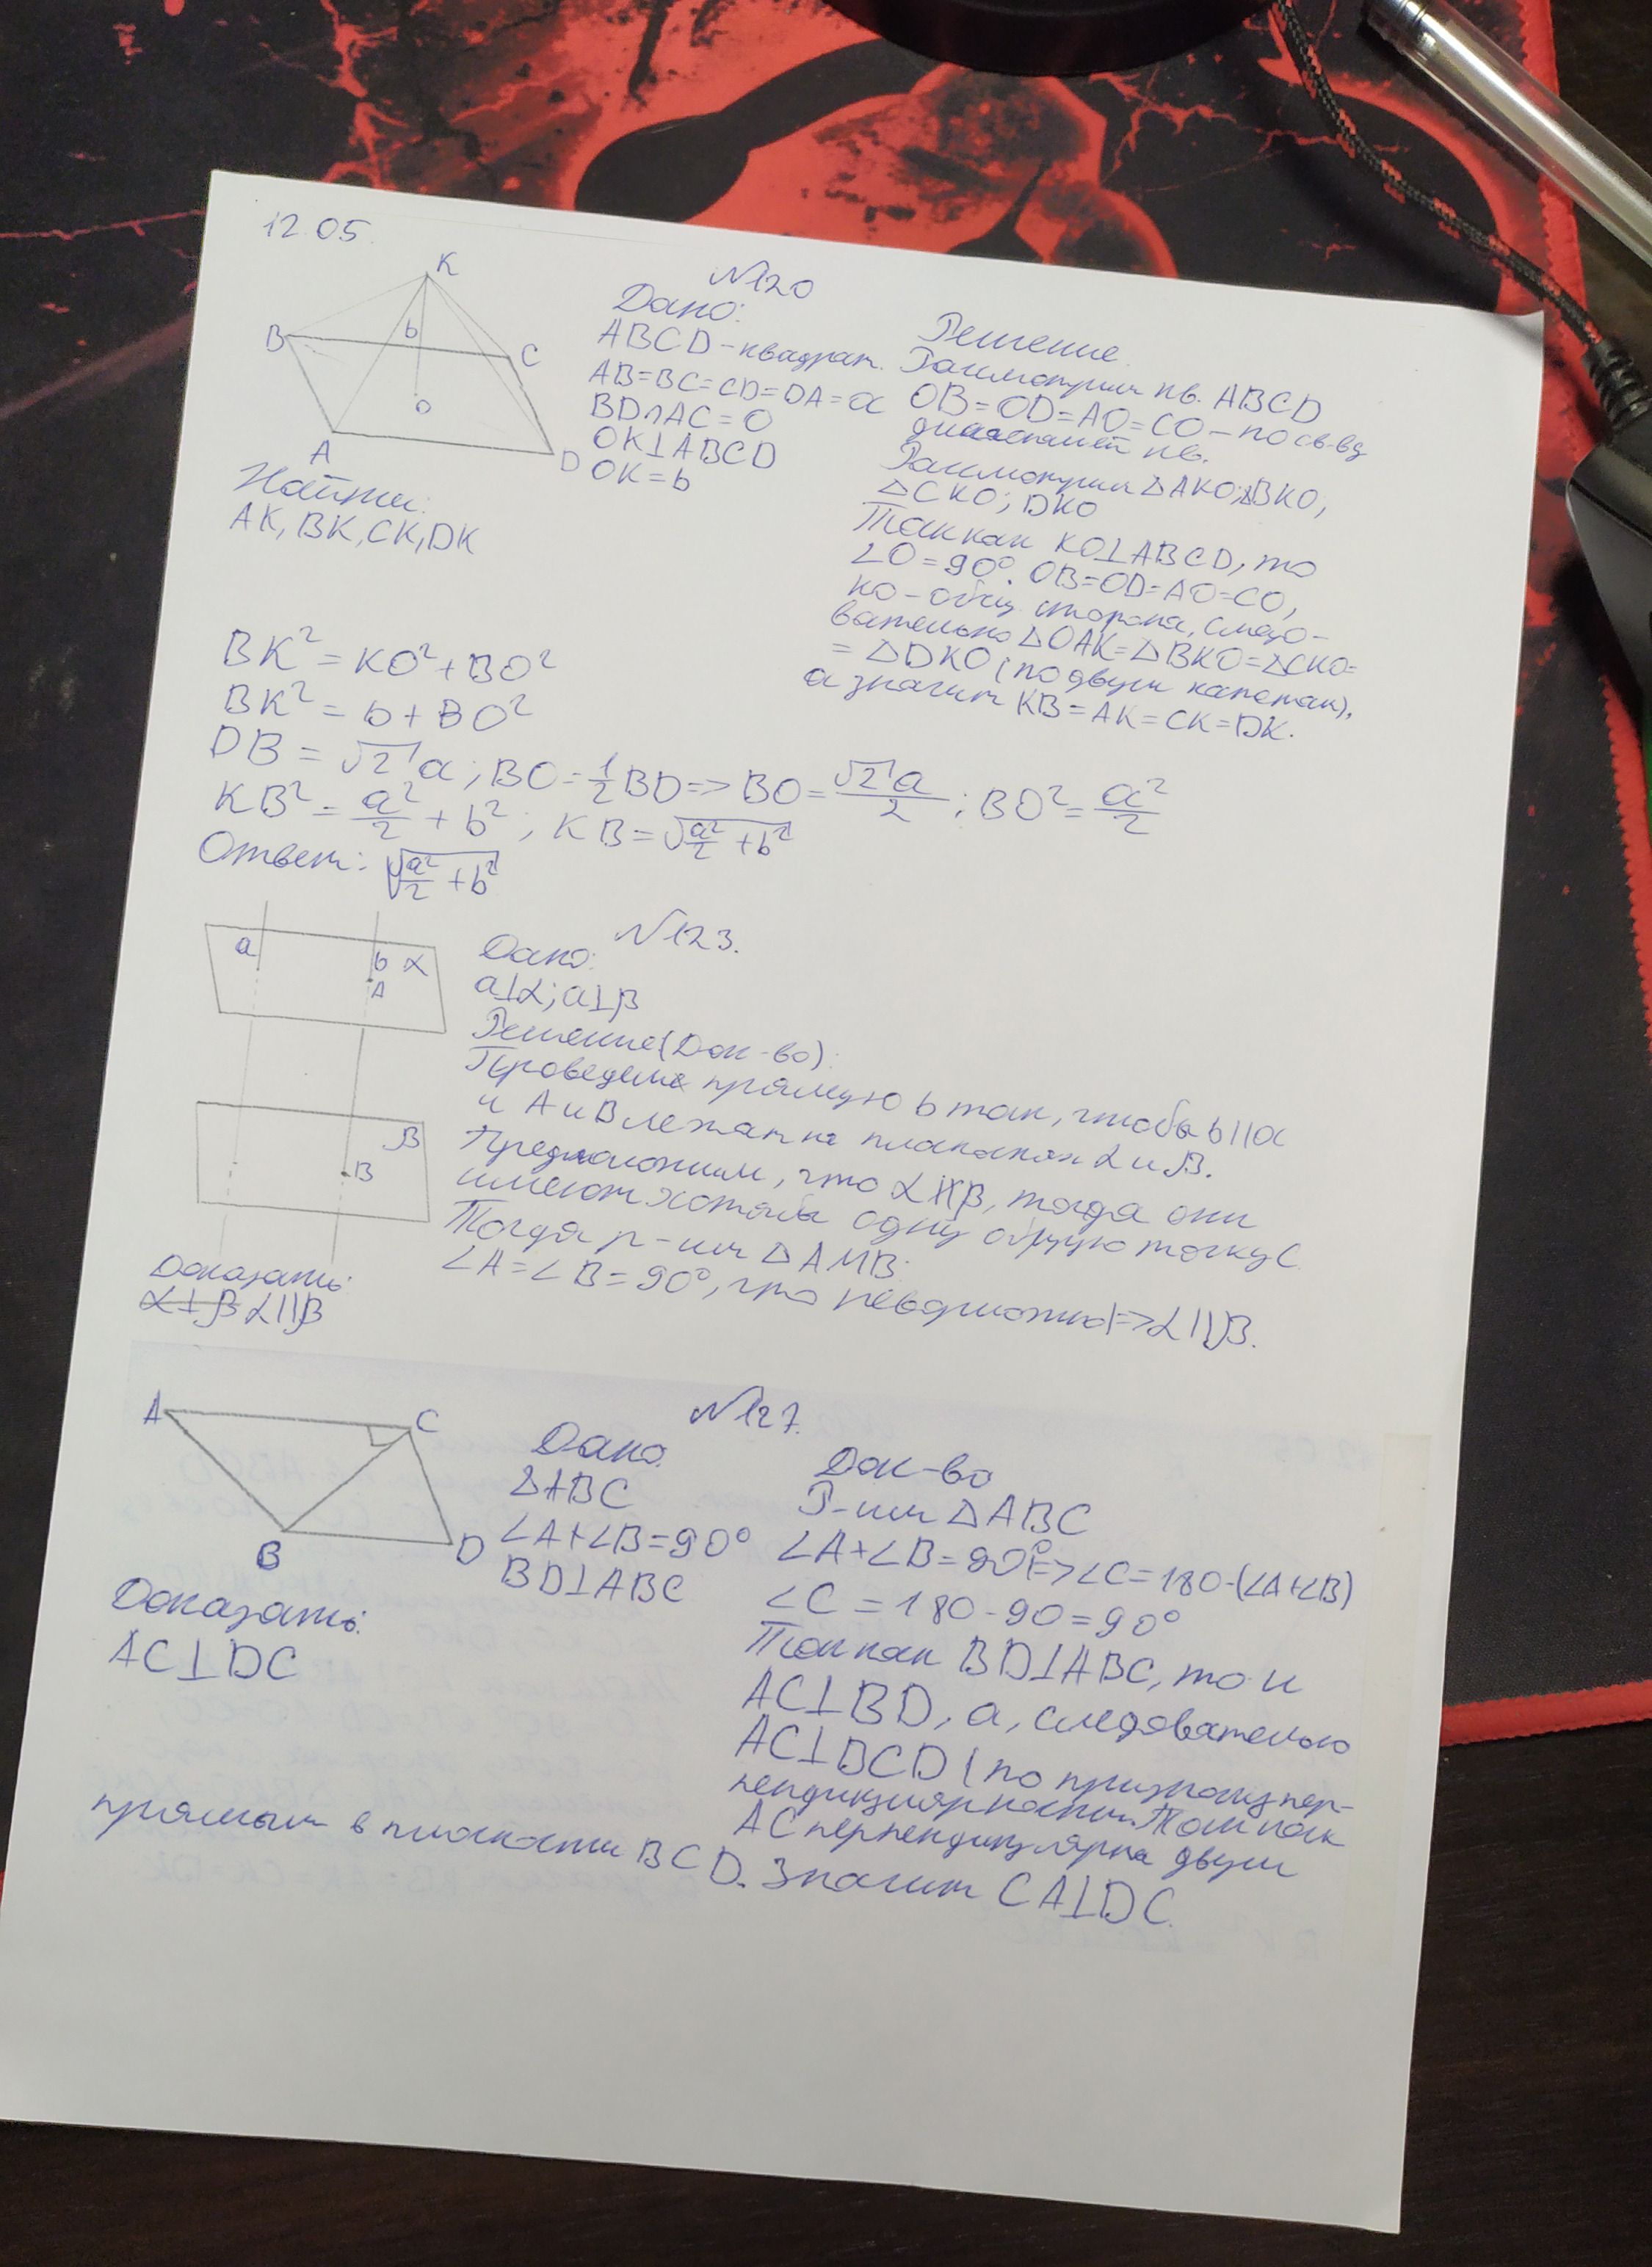 12.05.
K
B
b
C
O
A
D
№120
Дано:
ABCD – квадрат.
AB=BC=CD=DA=a
BD∩AC=O
OK⊥ABCD
OK=b
Найти:
AK, BK, CK, DK
Решение.
Рассмотрим кв. ABCD
OB=OD=AO=CO – по св-ву
диагоналей кв.
Рассмотрим ΔAKO; ΔBKO,
ΔCKO; DKO
Так как KO⊥ABCD, то
∠O=90°. OB=OD=AO=CO,
KO – общ. сторона, следо-
вательно ΔOAK=ΔBKO=ΔCKO=
=ΔDKO (по двум катетам),
а значит KB=AK=CK=DK.
BK²=KO²+BO²
BK²=b+BO²
DB=√2 a; BO=1/2 BD=>BO=√2 a/2; BO²=a²/2
KB²=a²/2+b²; KB=√(a²/2+b²)
Ответ: √(a²/2+b²)
№123.
a
b
α
A
β
B
Дано:
a⊥α; a⊥β
Решение (Док-во):
Проведём прямую b так, чтобы b||a
и A и B лежат на плоскостях α и β.
Предположим, что α∦β, тогда они
имеют хотябы одну общую точку C.
Тогда р-им ΔAMB:
∠A=∠B=90°, что невозможно=>α||β.
Доказать:
α⊥β α||β
№127.
A
C
B
D
Дано:
ΔABC
∠A+∠B=90°
BD⊥ABC
Доказать:
AC⊥DC
Док-во
Р-им ΔABC
∠A+∠B=90°=>∠C=180-(∠A+∠B)
∠C=180-90=90°
Так как BD⊥ABC, то и
AC⊥BD, а, следовательно
AC⊥BCD (по признаку пер-
пендикулярности. Так как
AC перпендикулярна двум
прямым в плоскости BCD. Значит CA⊥DC.